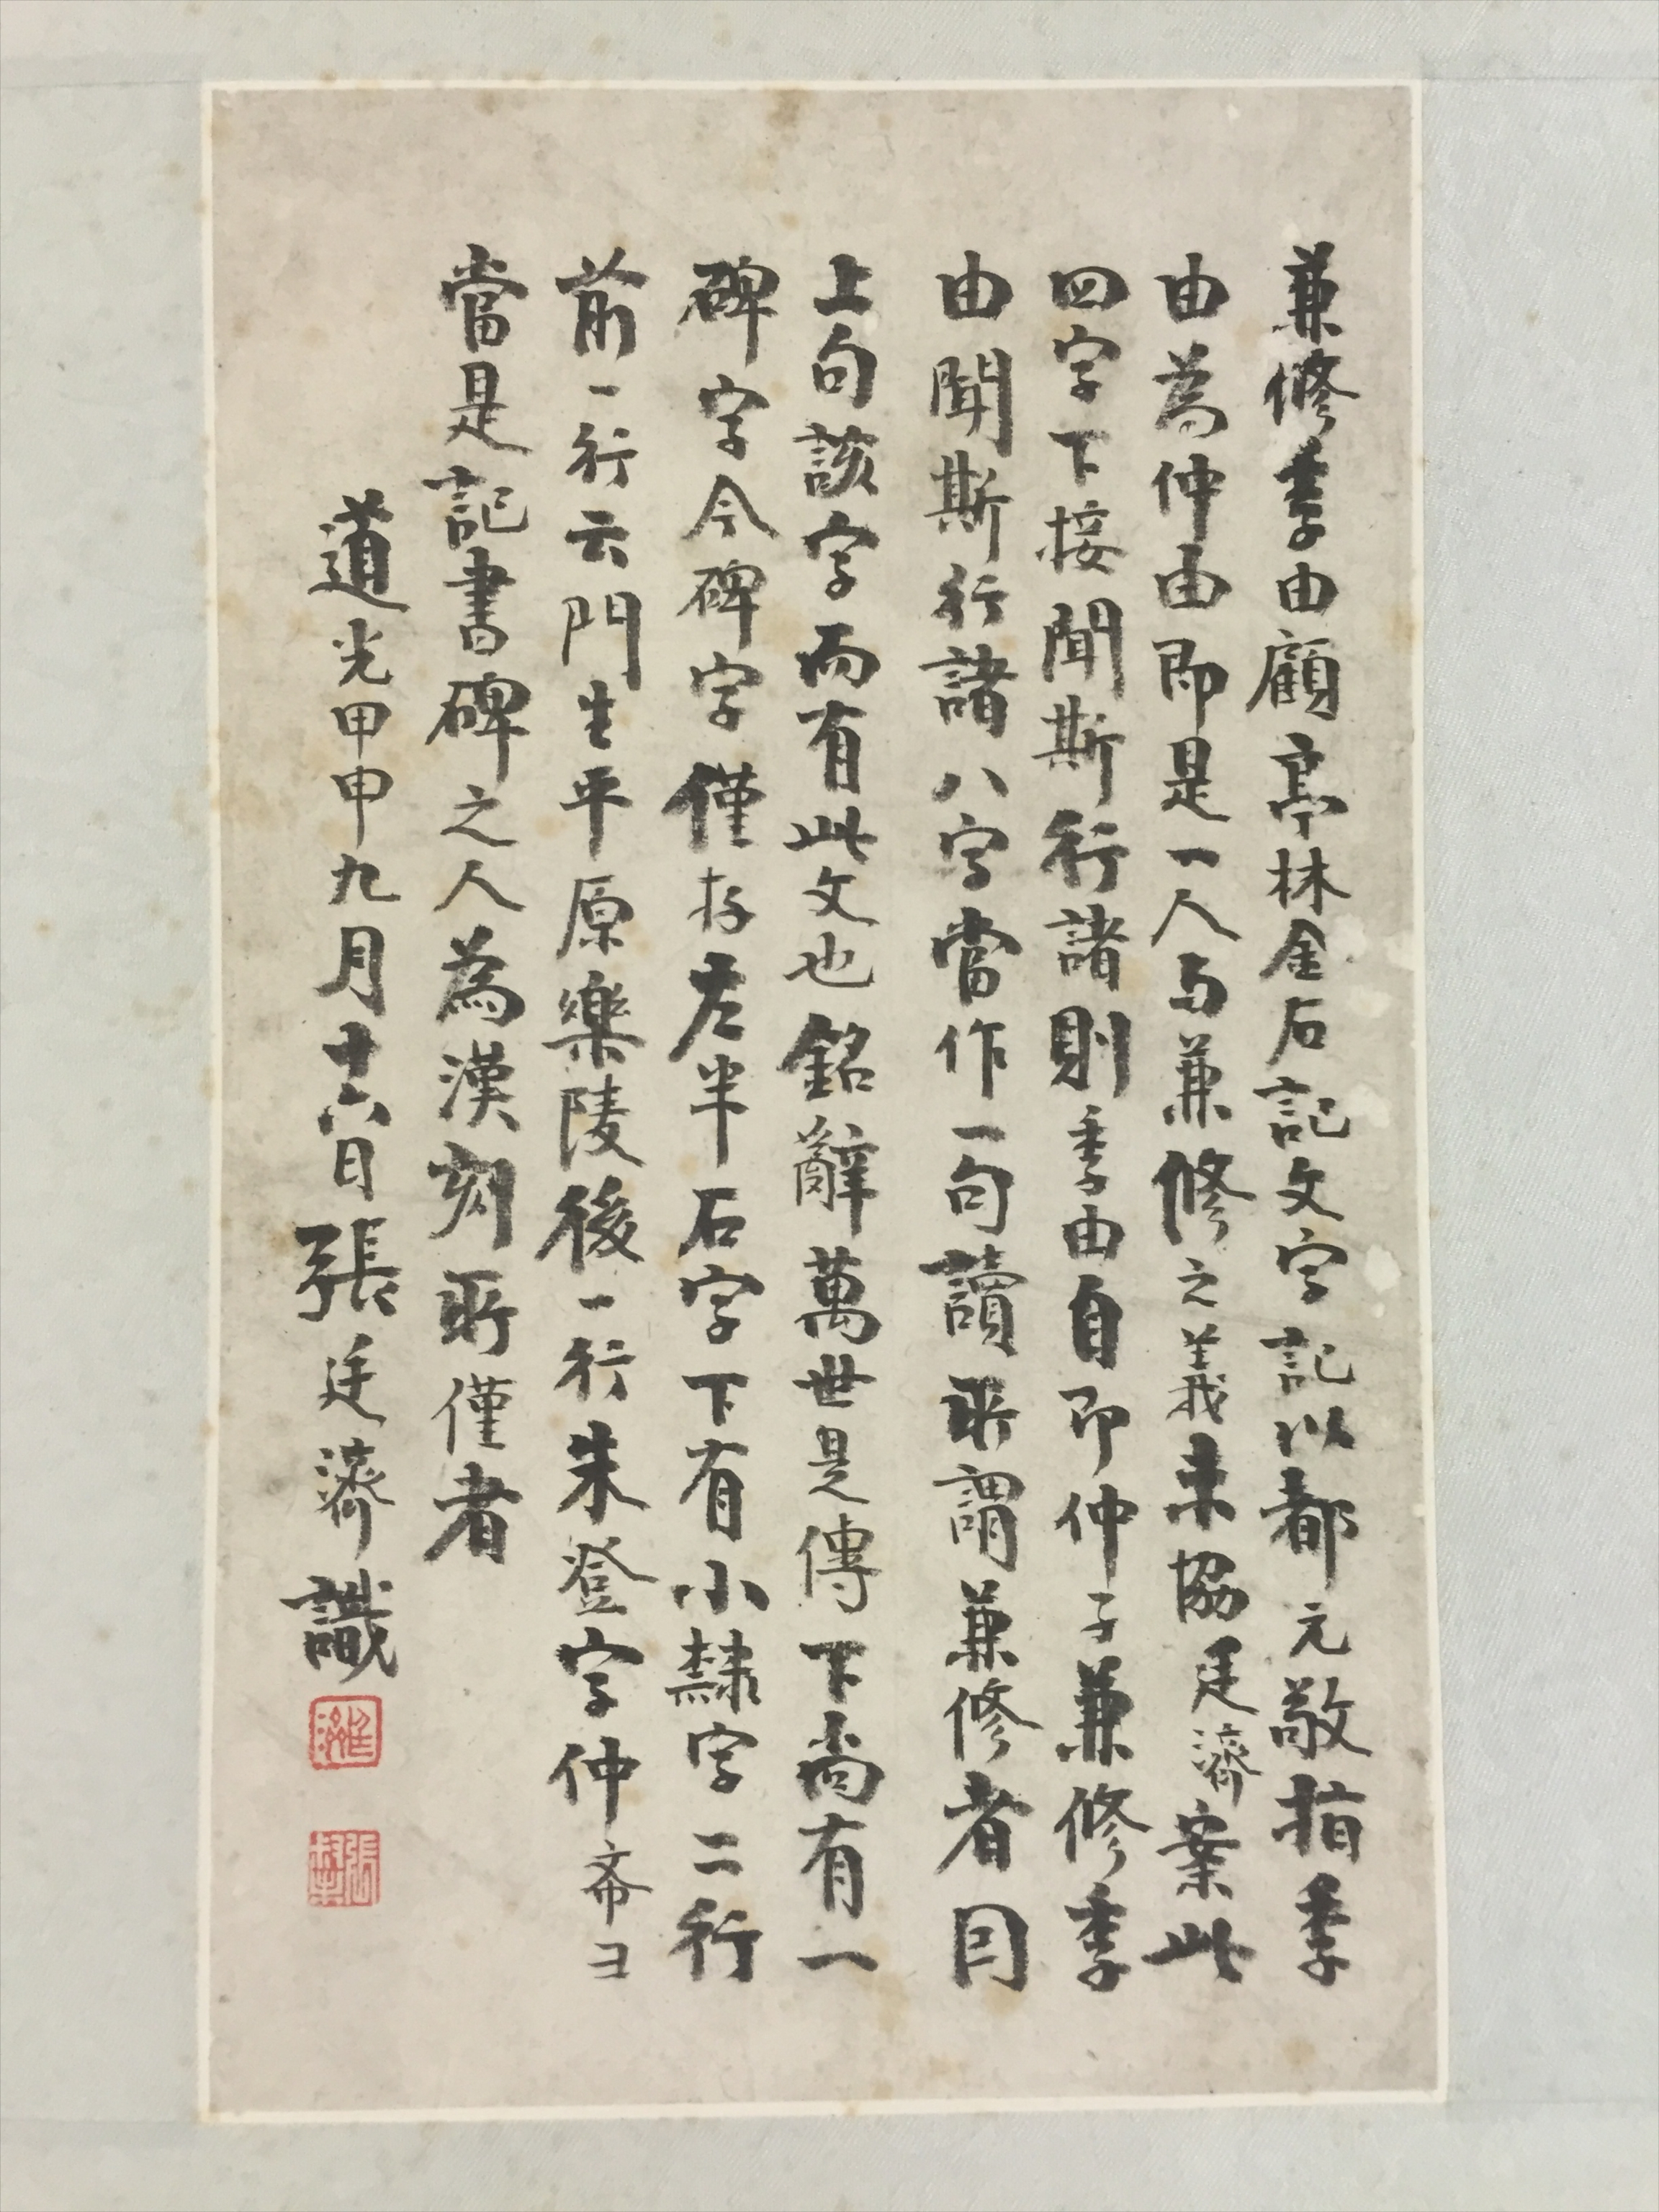 兼修季由顧亭林金石記文字記以都元敬指季
由為仲由即是一人与兼修之義未協廷濟案此
四字下接聞斯行諸則季由自即仲子兼修季
由聞斯行諸八字當作一句讀所謂兼修者目
上句該字而有此文也銘辭萬世是傳下尚有一
碑字今碑字僅存左半石字下有小隸字二行
前一行云門生平原樂陵後一行朱登字仲斋
當是記書碑之人為漢刻所僅者
道光甲申九月十六日張廷濟識